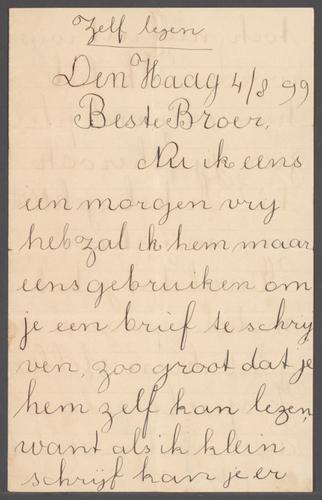 Zelf lezen
Den Haag 4/8 99
Beste Broer,
Nu ik eens
een morgen vrij
heb zal ik hem maar
eens gebruiken om
je een brief te schrij
ven, zoo groot dat je
hem zelf kan lezen,
want als ik klein
schrijf kan je er